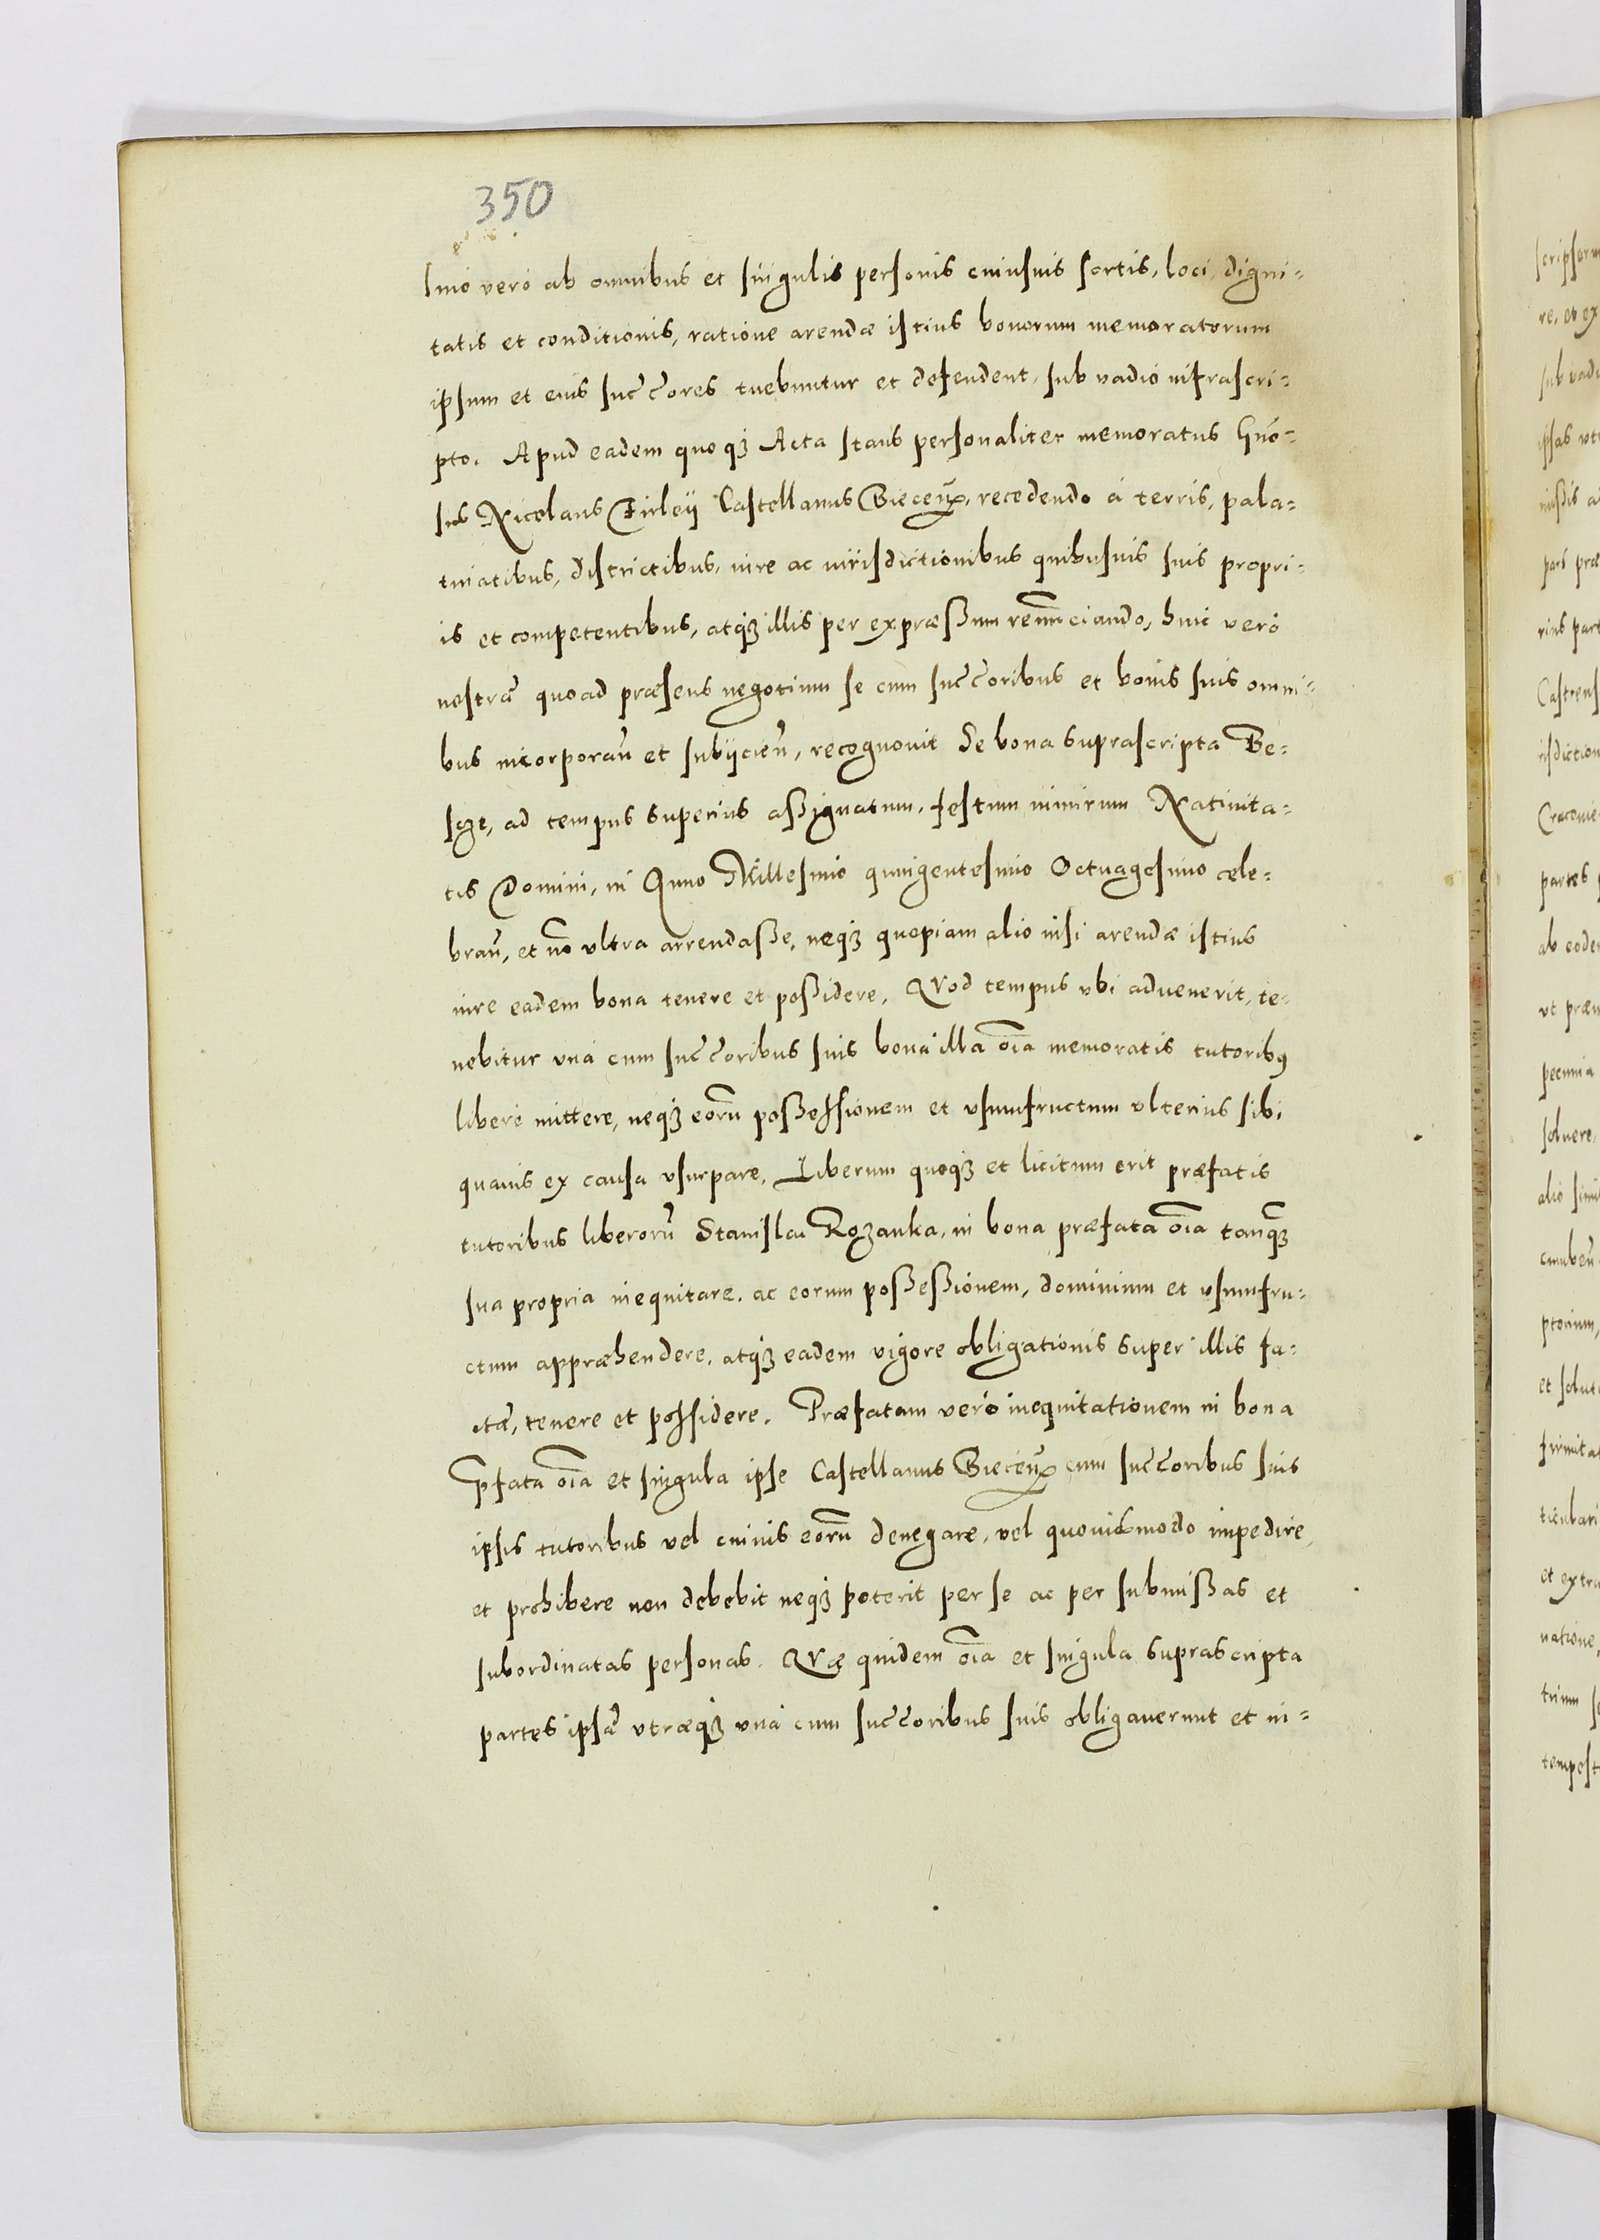 350
Imo vero ab omnibus et singulis personis cuiusuis sortis, loci, digni-
tatis et conditionis, ratione arendæ istius bonorum memoratorum
ipsum et eius succ̃ores tuebuntur et defendent, sub vadio infrascri-
pto. Apud eadem quoqꝫ Acta stans personaliter memoratus Gñõ-
sus Nicolaus Firleij Castellanus Biecen̄, recedendo á terris, pala-
tinatibus, districtibus, iure ac iurisdictionibus quibusuis suis propri-
is et competentibus, atqꝫ illis per expræssum renunciando, huic vero
nostræ quoad præsens negotium se cum succ̃oribus et bonis suis omni-
bus incorporan̄ et subijcien̄, recognouit Se bona suprascripta Be-
scze, ad tempus superius assignatum, festum nimirum Natiuita-
tis Domini, in Anno Millesimo quingentesimo Octuagesimo cele-
bran̄, et nō vltra arrendasse, neqꝫ quopiam alio nisi arendæ istius
iure eadem bona tenere et possidere. Quod tempus vbi aduenerit, te-
nebitur vná cum succ̃oribus suis bona illa oīa memoratis tutoribꝰ
liberè mittere, neqꝫ eorū possessionem et vsumfructum vlterius sibi
quauis ex causa vsurpare. Liberum quoqꝫ et licitum erit præfatis
tutoribus liberorū Stanislai Rozanka, in bona præfata oīa tanqꝫ
sua propria inequitare, ac eorum possessionem, dominium et vsumfru-
ctum appræhendere, atqꝫ eadem vigore obligationis super illis fa-
ctæ, tenere et possidere. Præfatam veró inequitationem in bona
p̄fata oīa et singula ipse Castellanus Biecen̄ cum succ̃oribus suis
ipsis tutoribus vel cuiuis eorū denegare, vel quouismodo impedire
et prohibere non debebit neqꝫ poterit per se ac per submissas et
subordinatas personas. Quæ quidem oīa et singula suprascripta
partes ipsæ vtræqꝫ vná cum succ̃oribus suis obligauerunt et in-